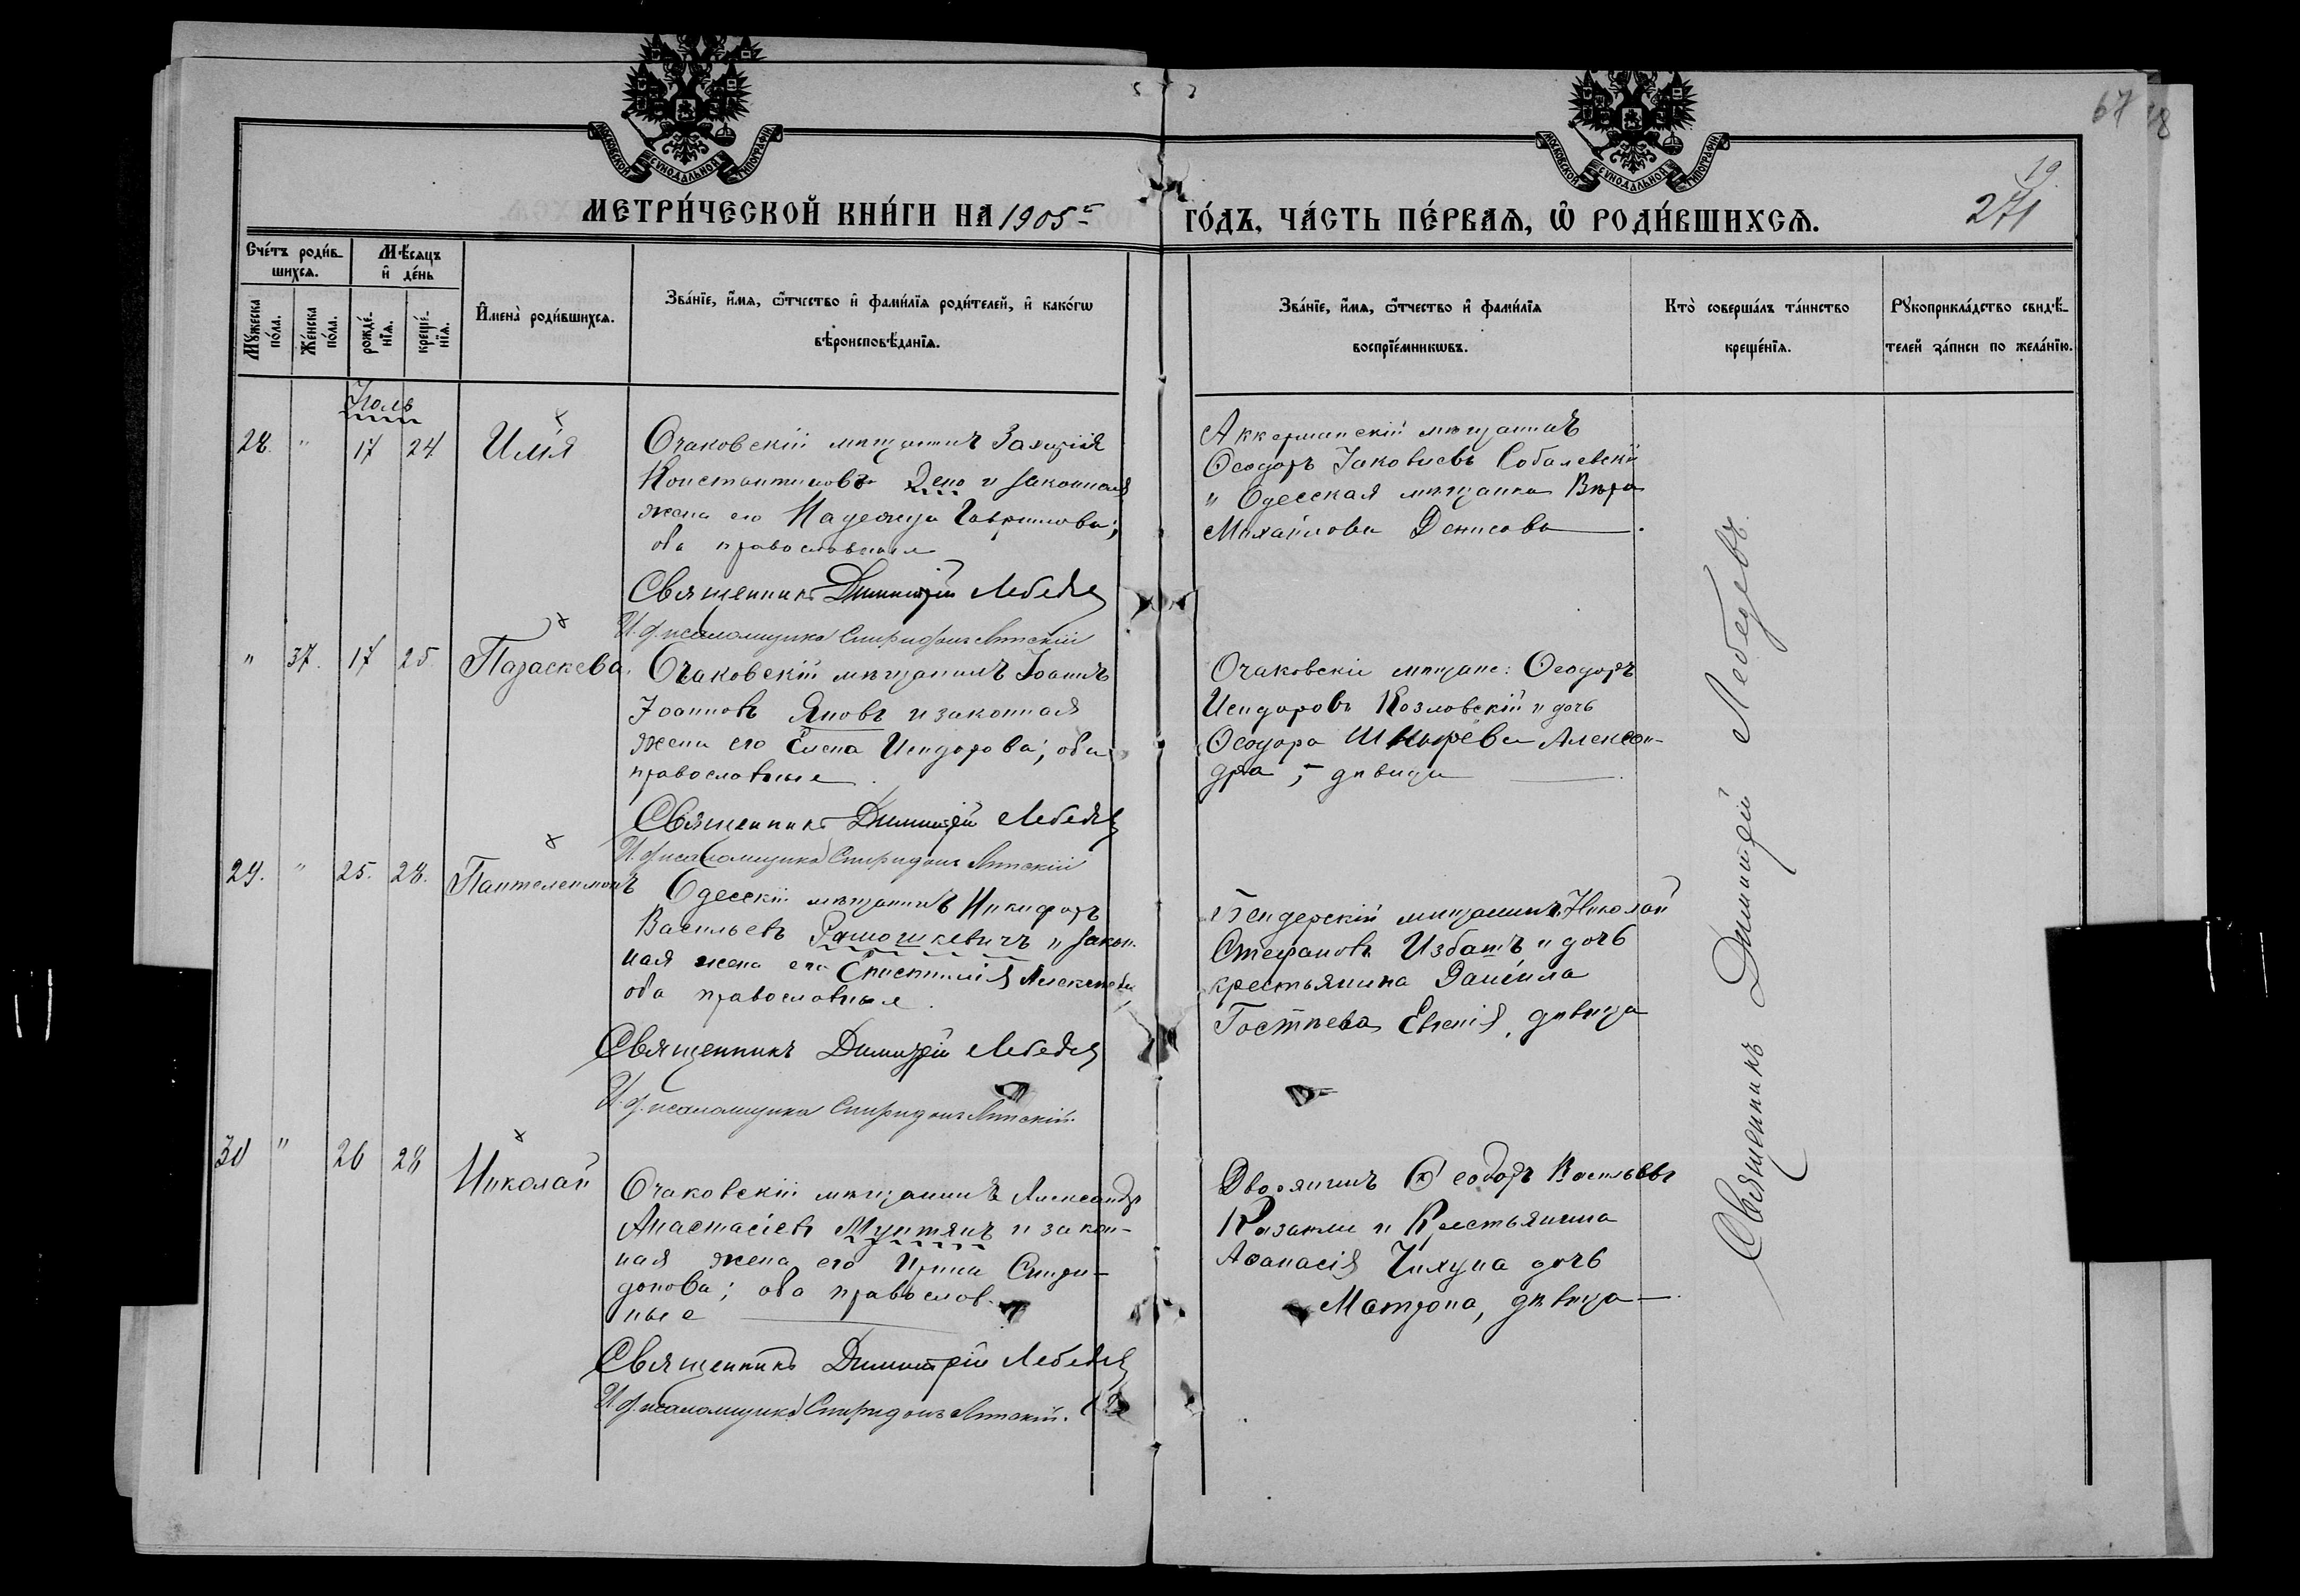 67
18
МОСКОВСКОЙ СѴНОДАЛЬНОЙ ТИПОГРАФІИ
МОСКОВСКОЙ СѴНОДАЛЬНОЙ ТИПОГРАФІИ
19
271
МЕТРИ́ЧЕСКОЙ КНИ́ГИ НА 1905 г
ГО́ДЪ, ЧА́СТЬ ПЕ́РВАѦ, Ѡ РОДИ́ВШИХСѦ.
Сче́тъ роди́в-
шихся.
Мѣ́сяцъ
и҆ де́нь
Мꙋ́жеска по́ла.
Же́нска по́ла.
рожде́-нїя.
креще́-нїя.
И҆мена̀ роди́вшихся.
Зва́нїе, и҆́мя, ѻ҆́тчество и҆ фами́лїя роди́телей, и҆ како́гѡ
вѣроисповѣ́данїя.
Зва́нїе, и҆́мя, ѻ҆́тчество и҆ фами́лїя
воспрїе́мникѡвъ.
Кто̀ соверша́лъ та́инство
креще́нїя.
Рꙋкоприкла́дство свидѣ́-
телей за́писи по жела́нїю.
Іюль
28. " 17 24 Илія
Очаковскій мѣщанинъ Захарія
Константиновъ Дено и законная
жена его Надежда Гавриилова;
оба православные
Священникъ Димитрій Лебедев
И. д. псаломщика Спиридонъ
Аккерманскій мѣщанинъ
Ѳеодоръ Іаковлевъ Собалевскій
и Одесская мѣщанка Вѣра
Михайлова Денисова.
" 37. 17 25. Параскева.
Очаковскій мѣщанинъ Іоаннъ
Іоанновъ Яновъ и законная
жена его Елена Исидорова; оба
православные
Священникъ Димитрій Лебедев
И. д. псаломщика Спиридонъ
Очаковскіе мѣщане: Ѳеодоръ
Исидоровъ Козловскій и дочь
Ѳеодора Шкырева Алексан-
дра, дѣвица
29. " 25. 28. Пантелеимонъ
Одесскій мѣщанинъ Никифоръ
Васильевъ Рашошкевичъ и закон-
ная жена его Епистимія Алексѣева
оба православные
Священникъ Димитрій Лебедев
И. д. псаломщика Спиридонъ
Бендерскій мѣщанинъ Николай
Стефановъ Избашъ и дочь
крестьянина Даніила
Гостѣева Евгенія, дѣвица
30 " 26 28 Николай
Очаковскій мѣщанинъ Александръ
Анастасіевъ Мунтянъ и закон-
ная жена его Ирина Спири-
донова; оба православ-
ные
Священникъ Димитрій Лебедев
И. д. псаломщика Спиридонъ
Дворянинъ Ѳеодоръ Васильевъ
Казакли и Крестьянина
Аѳанасія Чихуна дочь
Матрона, дѣвица
Священникъ Димитрій Лебедевъ